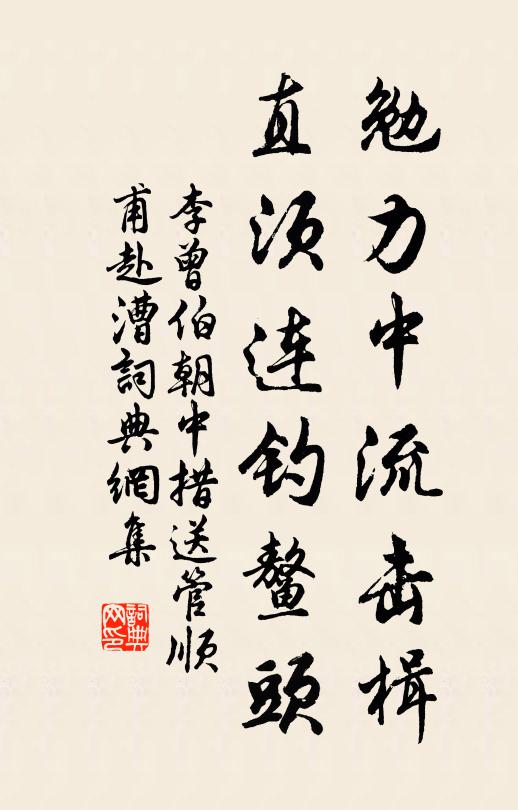 勉力中流击楫
直须连钓鳌頭
李曾伯朝中措送管順
甫赴漕詞典網集
詞典网印